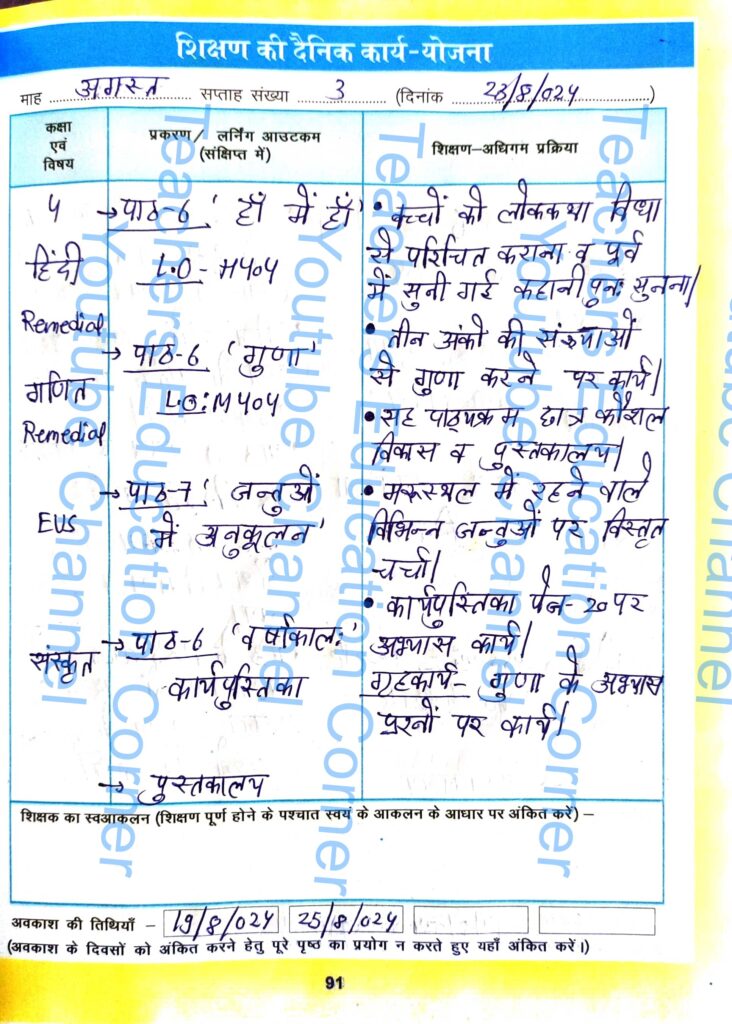 शिक्षण की दैनिक कार्य-योजना
माह अगस्त सप्ताह संख्या 3 (दिनांक 23/8/024)
कक्षा एवं विषय
प्रकरण/ लर्निंग आउटकम (संक्षिप्त में)
शिक्षण-अधिगम प्रक्रिया
५
हिंदी
Remedial
गणित
Remedial
EVS
संस्कृत
→ पाठ-6 'हाँ में हाँ'
L.O - H404
→ पाठ-6 'गुणा'
L.O: M404
→ पाठ-7 'जन्तुओं
में अनुकूलन'
→ पाठ-6 'वर्षाकालः'
कार्यपुस्तिका
→ पुस्तकालय
• बच्चों को लोककथा विधा
से परिचित कराना व पूर्व
में सुनी गई कहानी पुनः सुनना।
• तीन अंको की संख्याओं
से गुणा करने पर कार्य।
• सह पाठ्यक्रम छात्र कौशल
विकास व पुस्तकालय।
• मरुस्थल में रहने वाले
विभिन्न जन्तुओं पर विस्तृत
चर्चा।
• कार्यपुस्तिका पेज-20 पर
अभ्यास कार्य।
गृहकार्य- गुणा के अभ्यास
प्रश्नों पर कार्य।
शिक्षक का स्वआकलन (शिक्षण पूर्ण होने के पश्चात स्वयं के आकलन के आधार पर अंकित करें) –
अवकाश की तिथियाँ – 19/8/024 25/8/024
(अवकाश के दिवसों को अंकित करने हेतु पूरे पृष्ठ का प्रयोग न करते हुए यहाँ अंकित करें।)
91
Teachers Education Corner
Youtube Channel
Teachers Education Corner
Youtube Channel
Teachers Education Corner
Youtube Channel